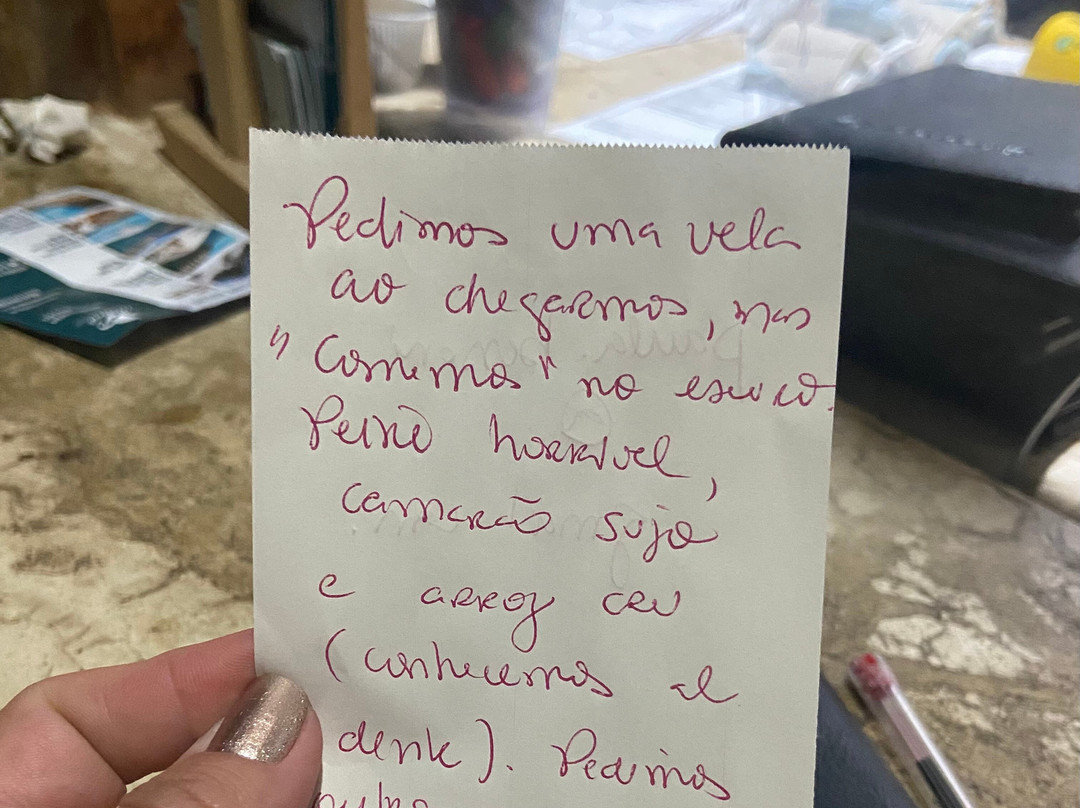 Pedimos uma vela
ao chegarmos, mas
"Comemos" no escuro.
Peixe horrível,
camarão sujo
e arroz cru
(conhecemos al
dente). Pedimos